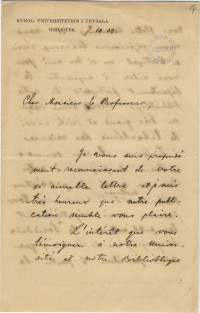 KUNGL. UNIVERSITETETS I UPPSALA
BIBLIOTEK.
7.10.08
Cher Monsieur le Professeur
Je vous suis profondé
ment reconnaissant de votre
si aimable lettre et suis
très heureux que notre publi
cation semble vous plaire.
L'intérêt que vous
témoignez à notre Univer
sité et notre Bibliothèque